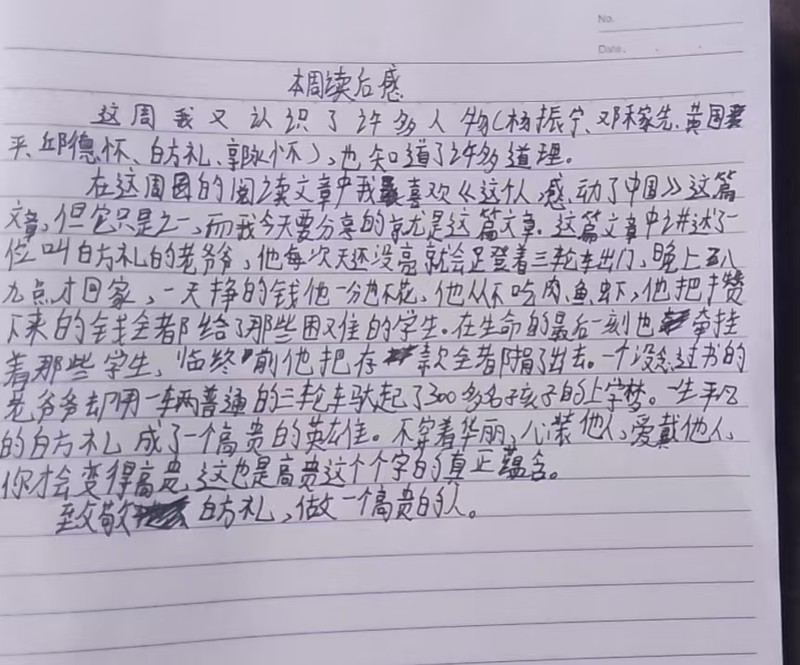 No.
Date.
本周读后感
这周我又认识了许多人物(杨振宁、邓稼先、黄国平、
平、邱德怀、白方礼、郭永怀),也知道了许多道理。
在这周的阅读文章中我最喜欢《这个人,感动了中国》这篇
文章,但它只是之一,而我今天要分享的就是这篇文章。这篇文章中讲述了一
位叫白方礼的老爷爷,他每次天还没亮就会足登着三轮车出门,晚上五八
九点才回家,一天挣的钱他一分也不花,他从不吃肉、鱼、虾,他把攒
下来的钱全都给了那些困难的学生。在生命的最后一刻也牵挂
着那些学生,临终前他把存款全都捐了出去。一个没念过书的
老爷爷却用一车两普通的三轮车驮起了300多名孩子的上学梦。一生平凡
的白方礼成了一个高贵的英雄。不穿着华丽,心装他人,爱戴他人,
你才会变得高贵,这也是高贵这个个字的真正蕴含。
致敬白方礼,做一个高贵的人。